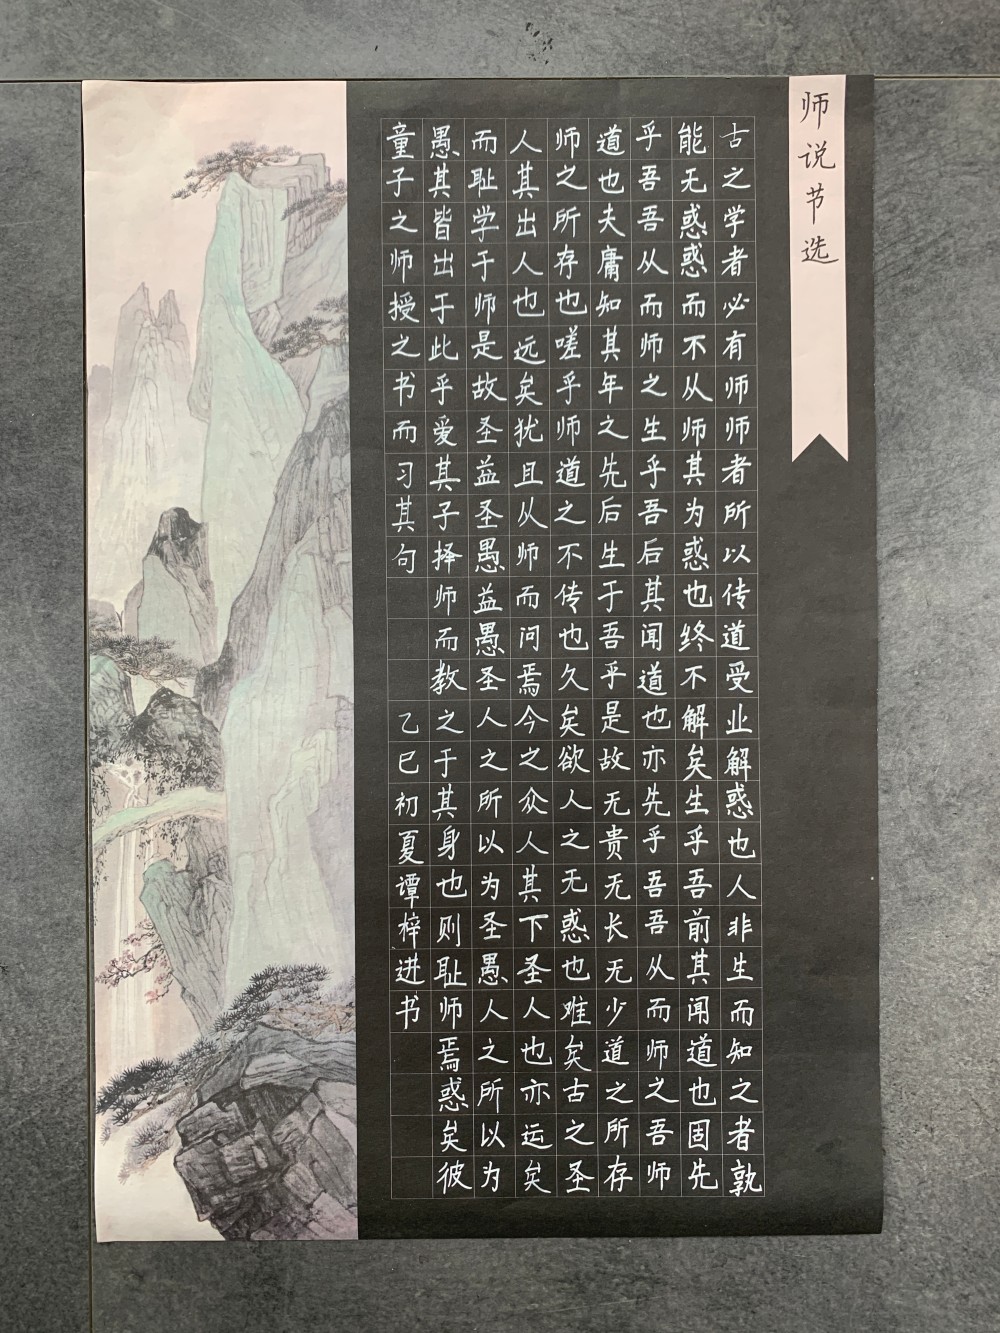 师说节选
古之学者必有师师者所以传道受业解惑也人非生而知之者孰
能无惑惑而不从师其为惑也终不解矣生乎吾前其闻道也固先
乎吾吾从而师之生乎吾后其闻道也亦先乎吾吾从而师之吾师
道也夫庸知其年之先后生于吾乎是故无贵无长无少道之所存
师之所存也嗟乎师道之不传也久矣欲人之无惑也难矣古之圣
人其出人也远矣犹且从师而问焉今之众人其下圣人也亦运矣
而耻学于师是故圣益圣愚益愚圣人之所以为圣愚人之所以为
愚其皆出于此乎爱其子择师而教之于其身也则耻师焉惑矣彼
童子之师授之书而习其句 乙巳初夏谭梓进书